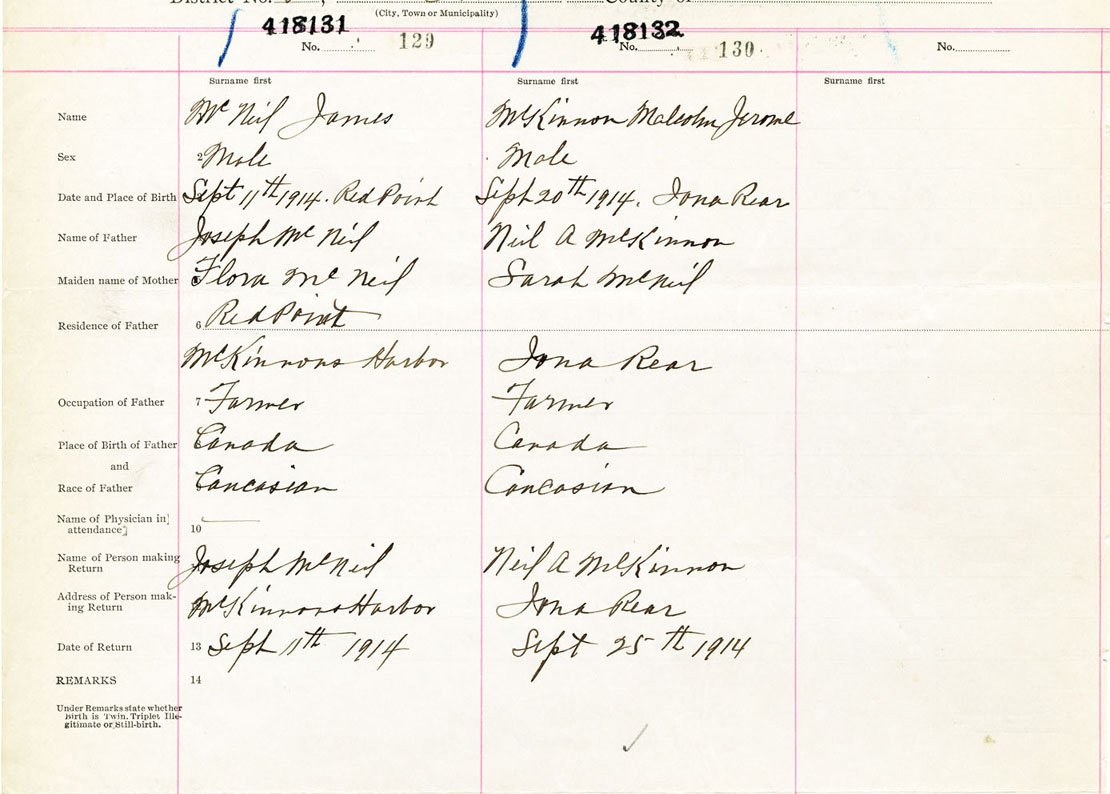 District No. , County of
(City, Town or Municipality)
418131 418132
No. 129 No. 130 No.
Surname first Surname first Surname first
Name Mc Neil James McKinnon Malcolm Jerome
Sex 2 Male Male
Date and Place of Birth Sept 11th 1914. Red Point Sept 20th 1914. Iona Rear
Name of Father Joseph Mc Neil Neil A McKinnon
Maiden name of Mother Flora Mc Neil Sarah McNeil
Residence of Father 6 Red Point
McKinnons Harbor Iona Rear
Occupation of Father 7 Farmer Farmer
Place of Birth of Father Canada Canada
and
Race of Father Caucasian Caucasian
Name of Physician in
attendance 10
Name of Person making
Return Joseph McNeil Neil A McKinnon
Address of Person mak-
ing Return McKinnons Harbor Iona Rear
Date of Return 13 Sept 11th 1914 Sept 25th 1914
REMARKS 14
Under Remarks state whether
Birth is Twin, Triplet Ille-
gitimate or Still-birth.